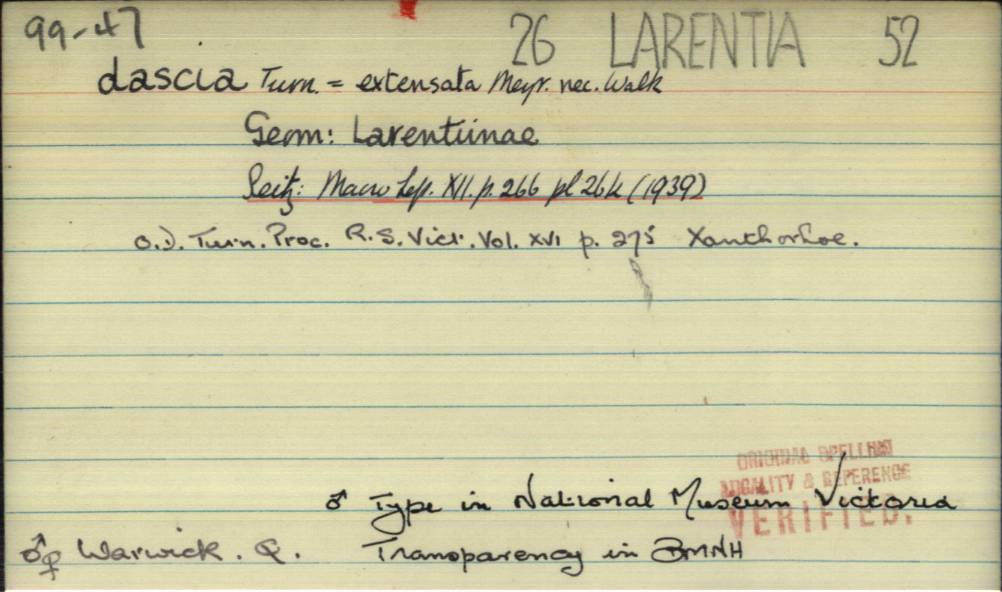 99-47 26 LARENTIA 52
dascia Turn. = extensata Meyr. nec. Walk
Geom: Larentiinae
Seitz: Macro Lep. XII. p. 266 pl 26k (1939)
O.D. Turn. Proc. R.S. Vict. Vol. XVI p. 275 Xanthorhoe.
ORIGINAL SPELLING
LOCALITY & REFERENCE
VERIFIED.
♂ Type in National Museum Victoria
♂♀ Warwick. Q. Transparency in BMNH